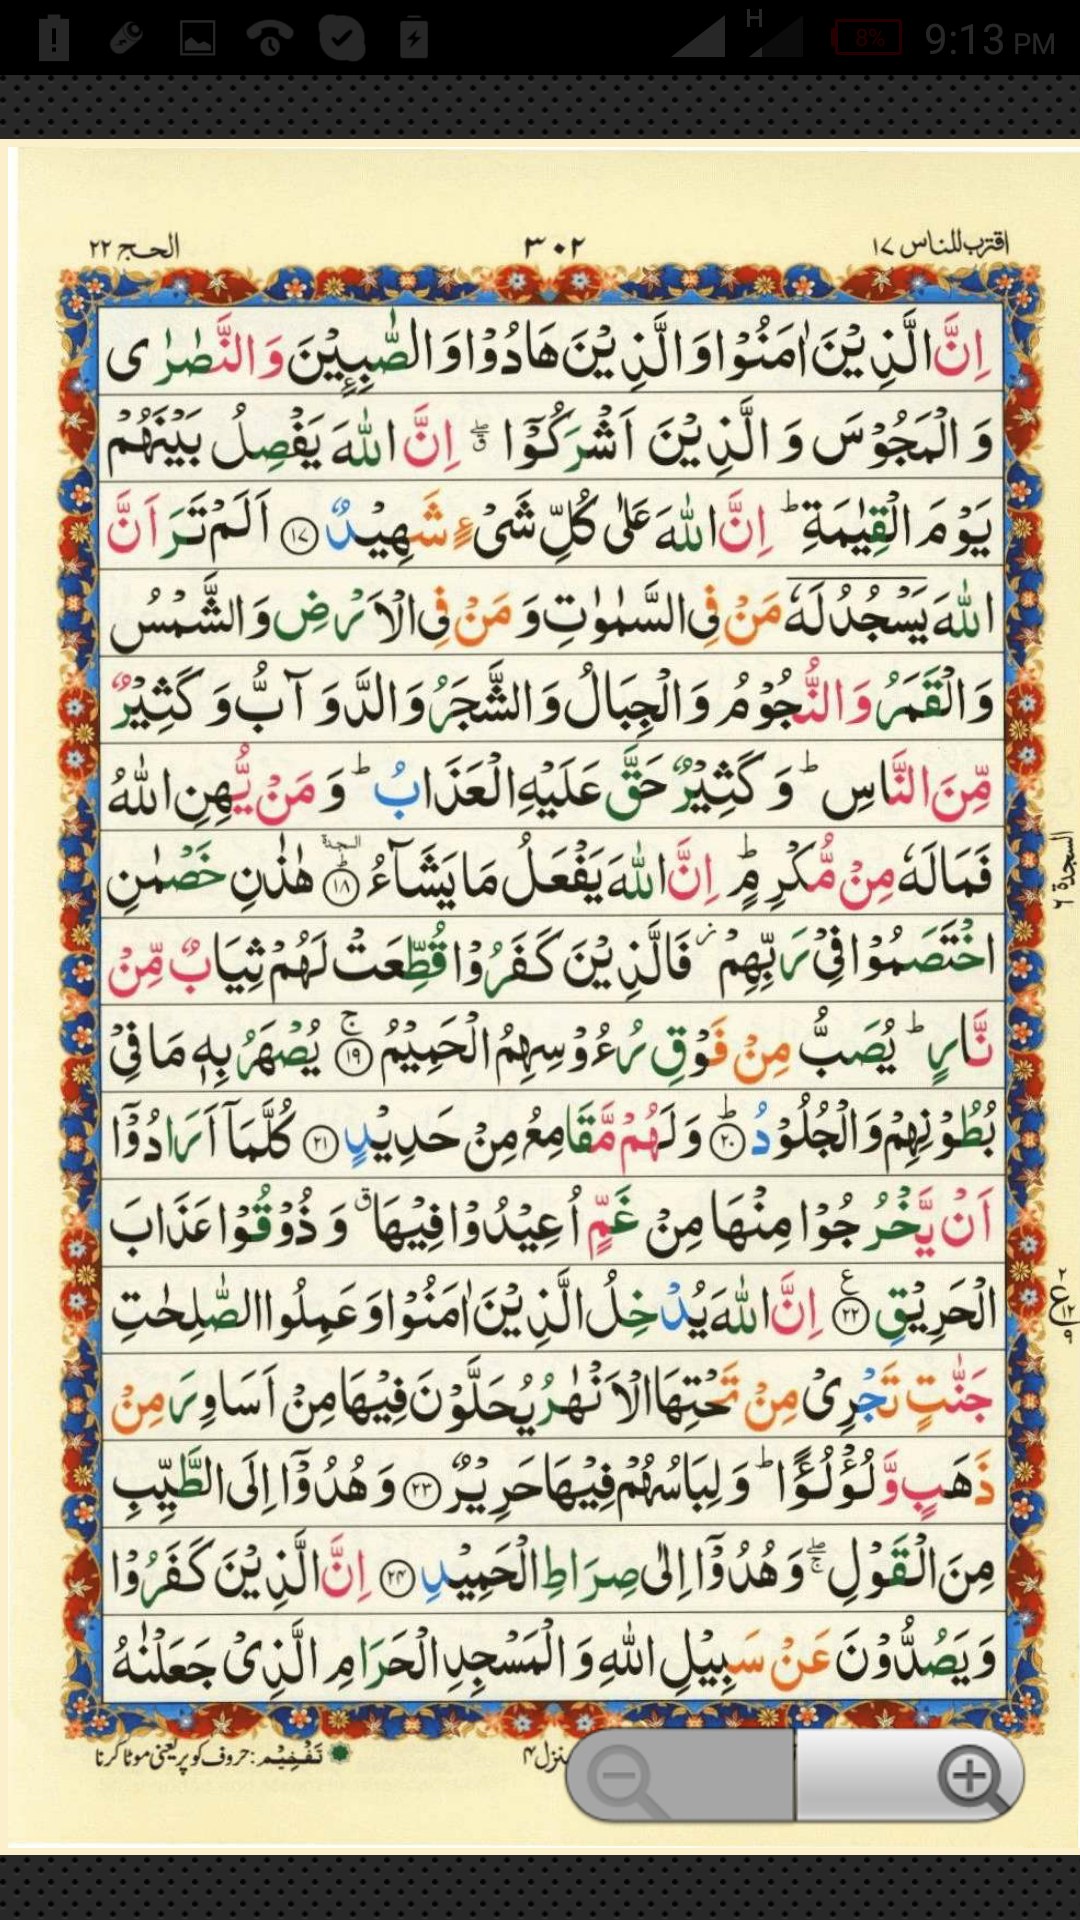 H 8% 9:13 PM
اقترب للناس ١٧ ٣٠٢ الحج ٢٢
اِنَّ الَّذِيْنَ اٰمَنُوْا وَ الَّذِيْنَ هَادُوْا وَ الصّٰبِـِٕيْنَ وَ النَّصٰرٰى
وَ الْمَجُوْسَ وَ الَّذِيْنَ اَشْرَكُوْۤا ۖۗ اِنَّ اللّٰهَ يَفْصِلُ بَيْنَهُمْ
يَوْمَ الْقِيٰمَةِ ؕ اِنَّ اللّٰهَ عَلٰى كُلِّ شَیْءٍ شَهِيْدٌ ١٧ اَلَمْ تَرَ اَنَّ
اللّٰهَ يَسْجُدُ لَهٗ مَنْ فِی السَّمٰوٰتِ وَ مَنْ فِی الْاَرْضِ وَ الشَّمْسُ
وَ الْقَمَرُ وَ النُّجُوْمُ وَ الْجِبَالُ وَ الشَّجَرُ وَ الدَّوَآبُّ وَ كَثِيْرٌ
مِّنَ النَّاسِ ؕ وَ كَثِيْرٌ حَقَّ عَلَيْهِ الْعَذَابُ ؕ وَ مَنْ يُّهِنِ اللّٰهُ
فَمَا لَهٗ مِنْ مُّكْرِمٍ ؕ اِنَّ اللّٰهَ يَفْعَلُ مَا يَشَآءُ ١٨ السجدة هٰذٰنِ خَصْمٰنِ
السجدة ٦
اخْتَصَمُوْا فِیْ رَبِّهِمْ ز فَالَّذِيْنَ كَفَرُوْا قُطِّعَتْ لَهُمْ ثِيَابٌ مِّنْ
نَّارٍ ؕ يُصَبُّ مِنْ فَوْقِ رُءُوْسِهِمُ الْحَمِيْمُ ١٩ ۚ يُصْهَرُ بِهٖ مَا فِیْ
بُطُوْنِهِمْ وَ الْجُلُوْدُ ٢٠ ؕ وَ لَهُمْ مَّقَامِعُ مِنْ حَدِيْدٍ ٢١ كُلَّمَاۤ اَرَادُوْۤا
اَنْ يَّخْرُجُوْا مِنْهَا مِنْ غَمٍّ اُعِيْدُوْا فِيْهَا ق وَ ذُوْقُوْا عَذَابَ
الْحَرِيْقِ ٢٢ ع اِنَّ اللّٰهَ يُدْخِلُ الَّذِيْنَ اٰمَنُوْا وَ عَمِلُوا الصّٰلِحٰتِ
٢ ع ١٢ ٩
جَنّٰتٍ تَجْرِیْ مِنْ تَحْتِهَا الْاَنْهٰرُ يُحَلَّوْنَ فِيْهَا مِنْ اَسَاوِرَ مِنْ
ذَهَبٍ وَّ لُؤْلُؤًا ؕ وَ لِبَاسُهُمْ فِيْهَا حَرِيْرٌ ٢٣ وَ هُدُوْۤا اِلَى الطَّيِّبِ
مِنَ الْقَوْلِ ۖۚ وَ هُدُوْۤا اِلٰى صِرَاطِ الْحَمِيْدِ ٢٤ اِنَّ الَّذِيْنَ كَفَرُوْا
وَ يَصُدُّوْنَ عَنْ سَبِيْلِ اللّٰهِ وَ الْمَسْجِدِ الْحَرَامِ الَّذِیْ جَعَلْنٰهُ
منزل ٤
تَفْخِيْم: حروف کو پر یعنی موٹا کرنا